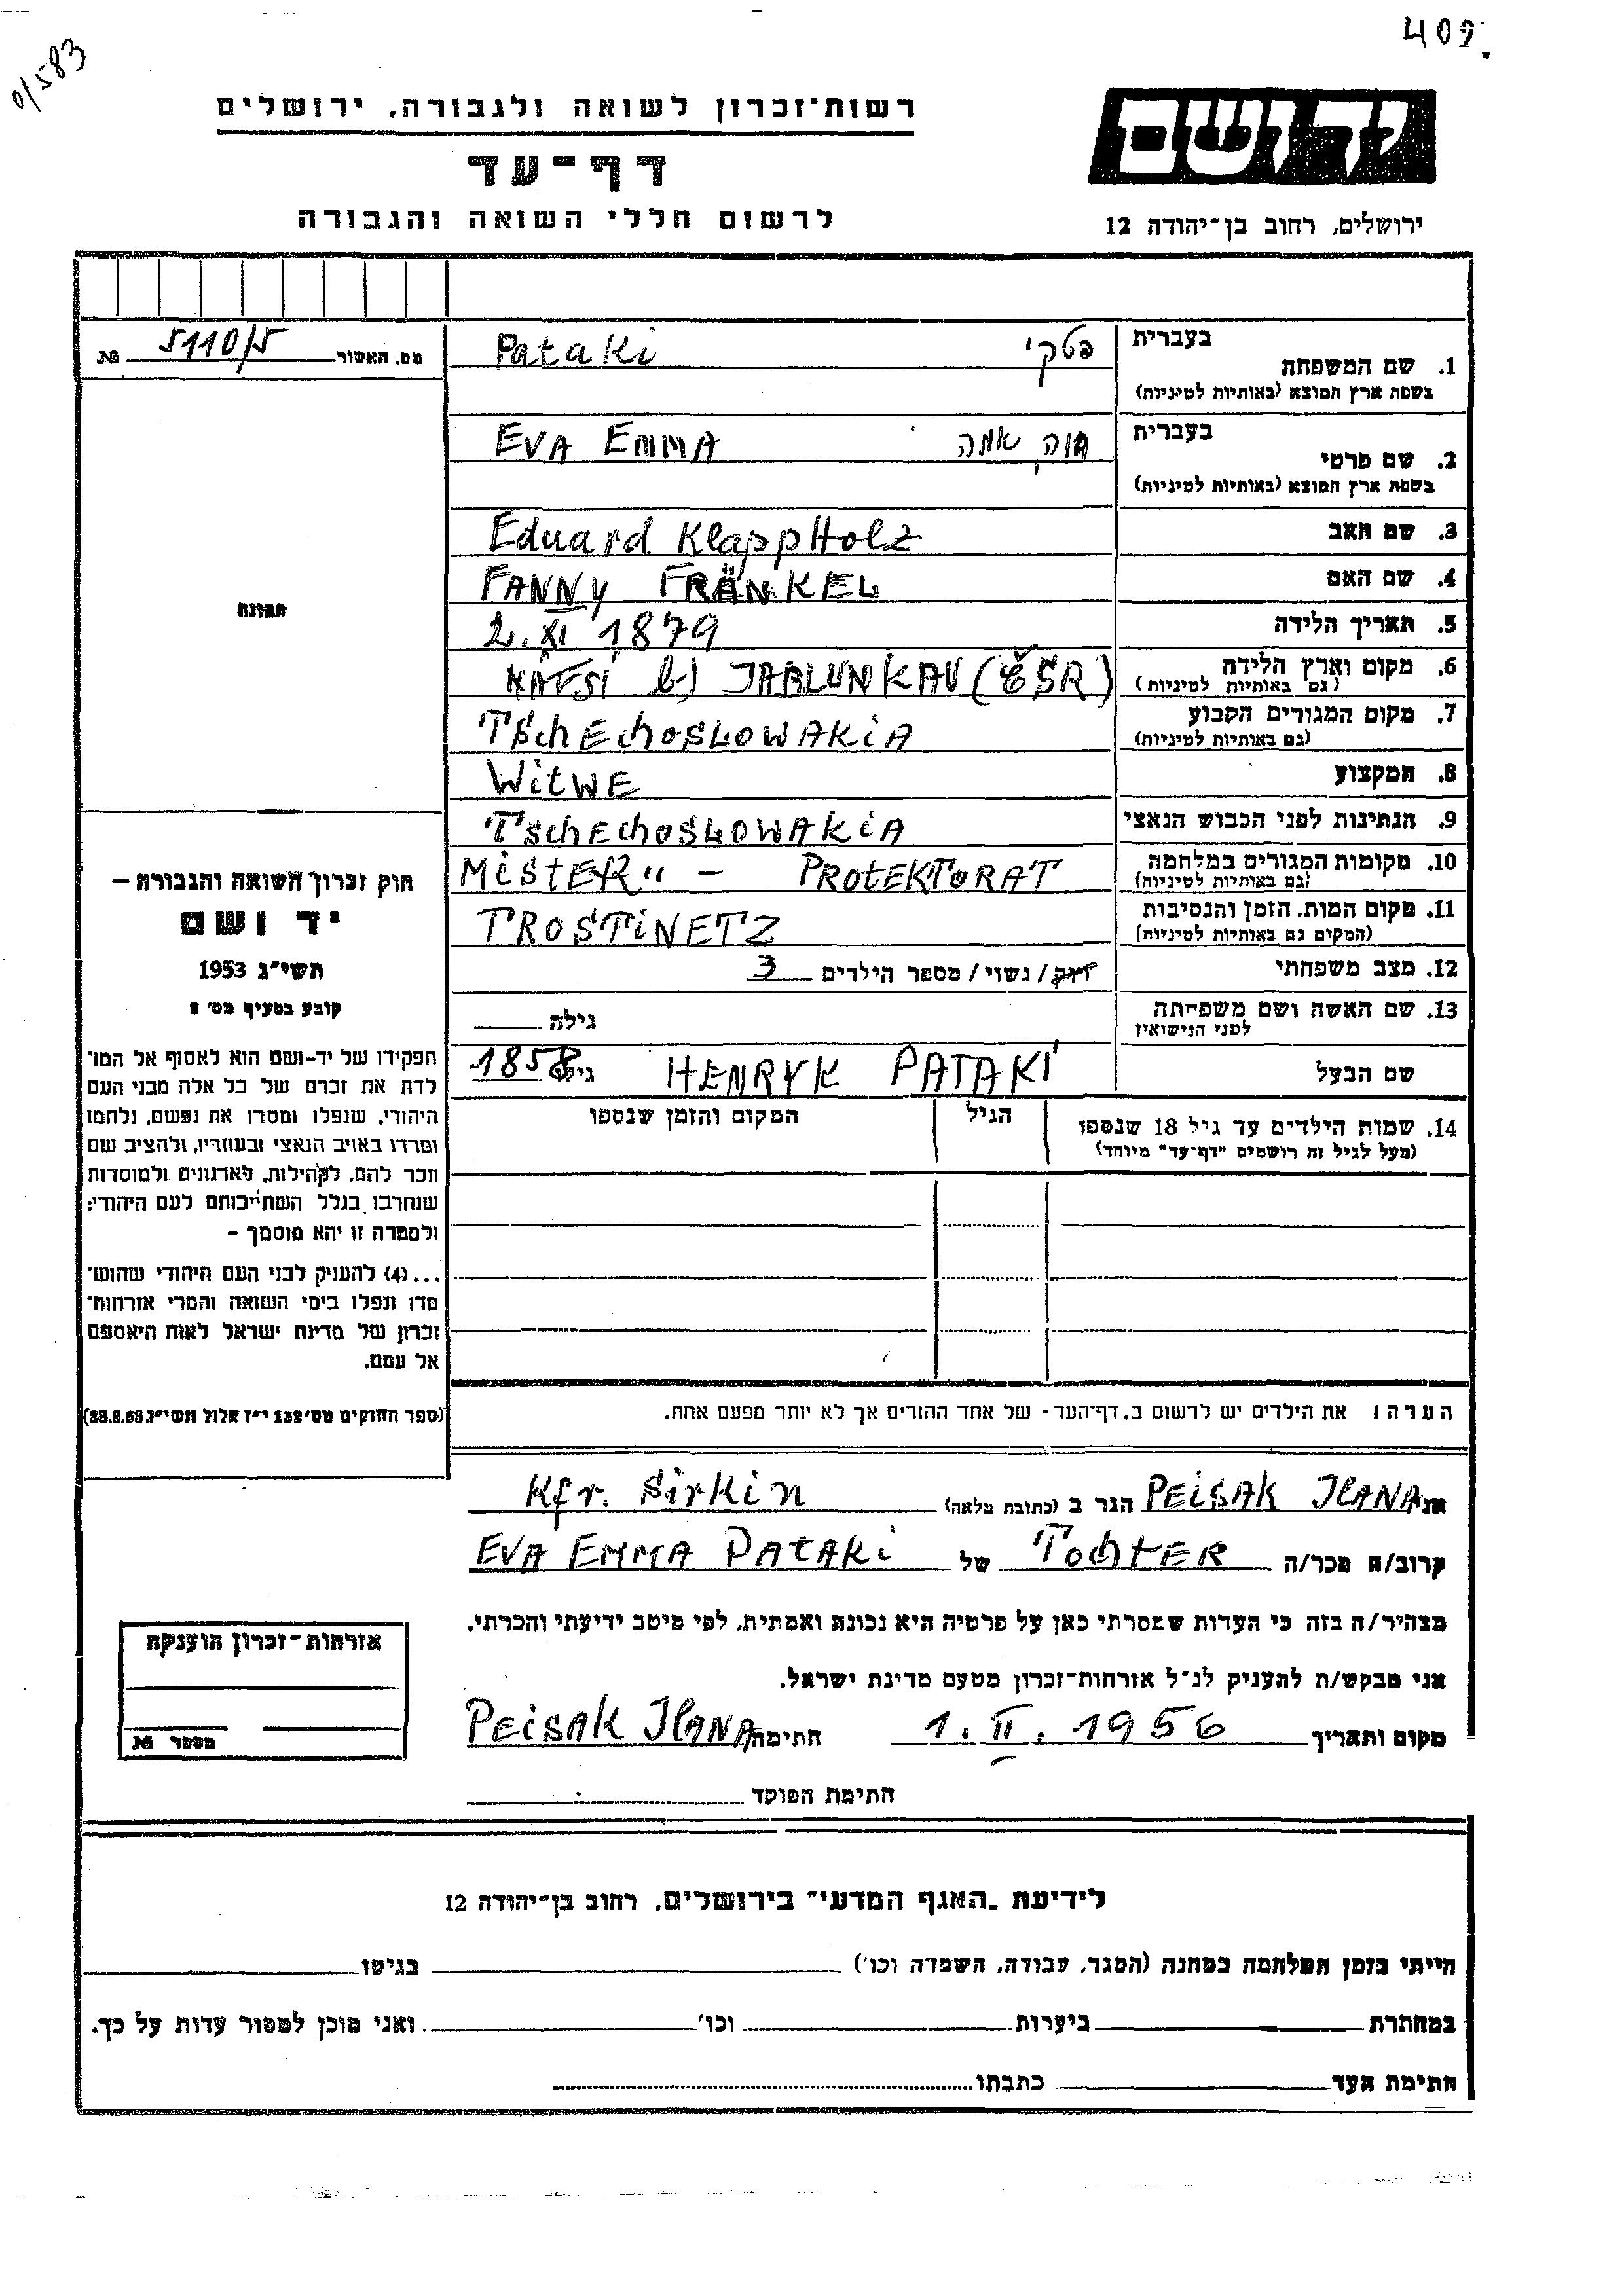 409
0/583
יד ושם
ירושלים, רחוב בן־יהודה 12
רשות־זכרון לשואה ולגבורה, ירושלים
דף־עד
לרשום חללי השואה והגבורה
מס. האשור 5110/5 №
בעברית
1. שם המשפחה
בשפת ארץ המוצא (באותיות לטיניות)
פטקי Pataki
בעברית
2. שם פרטי
בשפת ארץ המוצא (באותיות לטיניות)
חוה אמה EVA EMMA
3. שם האב Eduard KlappHolz
4. שם האם FANNY FRÄNKEL
5. תאריך הלידה 2. XI 1879
6. מקום וארץ הלידה
(גם באותיות לטיניות)
b) JABLUNKAU (ČSR)
7. מקום המגורים הקבוע
(גם באותיות לטיניות)
TSchEchoSLOWAKiA
8. המקצוע WitWE
9. הנתינות לפני הכבוש הנאצי TSchEchoSLOWAKiA
10. מקומות המגורים במלחמה
(גם באותיות לטיניות)
MiSTEK" – PROTEKTORAT
11. מקום המות, הזמן והנסיבות
(המקום גם באותיות לטיניות)
TROSTiNETZ
12. מצב משפחתי רווק/נשוי/מספר הילדים 3
13. שם האשה ושם משפחתה
לפני הנישואין
גילה
שם הבעל HENRYK PATAKI גילו 1858
14. שמות הילדים עד גיל 18 שנספו
(מעל לגיל זה רושמים "דף־עד" מיוחד)
הגיל
המקום והזמן שנספו
תמונה
חוק זכרון השואה והגבורה –
יד ושם
תשי"ג 1953
קובע בסעיף מס' 2
תפקידו של יד-ושם הוא לאסוף אל המו־
לדת את זכרם של כל אלה מבני העם
היהודי, שנפלו ומסרו את נפשם, נלחמו
ומרדו באויב הנאצי ובעוזריו, ולהציב שם
וזכר להם, לקהילות, לארגונים ולמוסדות
שנחרבו בגלל השתייכותם לעם היהודי;
ולמטרה זו יהא מוסמך –
...(4) להעניק לבני העם היהודי שהוש־
מדו ונפלו בימי השואה והמרי אזרחות־
זכרון של מדינת ישראל לאות היאספם
אל עמם.
(ספר החוקים מס' 132 י"ז אלול תשי"ג 28.8.53)
הערה: את הילדים יש לרשום ב"דף־העד" של אחד ההורים אך לא יותר מפעם אחת.
אני PEiSAK ILANA הגר ב (כתובת מלאה) Kfr. Sirkin
קרוב/ה מכר/ה TochtER של EVA EMMA PATAKi
מצהיר/ה בזה כי העדות שמסרתי כאן על פרטיה היא נכונה ואמתית, לפי מיטב ידיעתי והכרתי.
אני מבקש/ת להעניק לנ"ל אזרחות־זכרון מטעם מדינת ישראל.
מקום ותאריך 1. II. 1956 חתימה PEiSAK ILANA
חתימת הפוקד
אזרחות־זכרון הוענקה
מספר №
לידיעת "האגף המדעי" בירושלים, רחוב בן־יהודה 12
הייתי בזמן המלחמה במחנה (הסגר, עבודה, השמדה וכו') בגיטו
במחתרת ביערות וכו' ואני מוכן למסור עדות על כך.
חתימת העד כתבתו